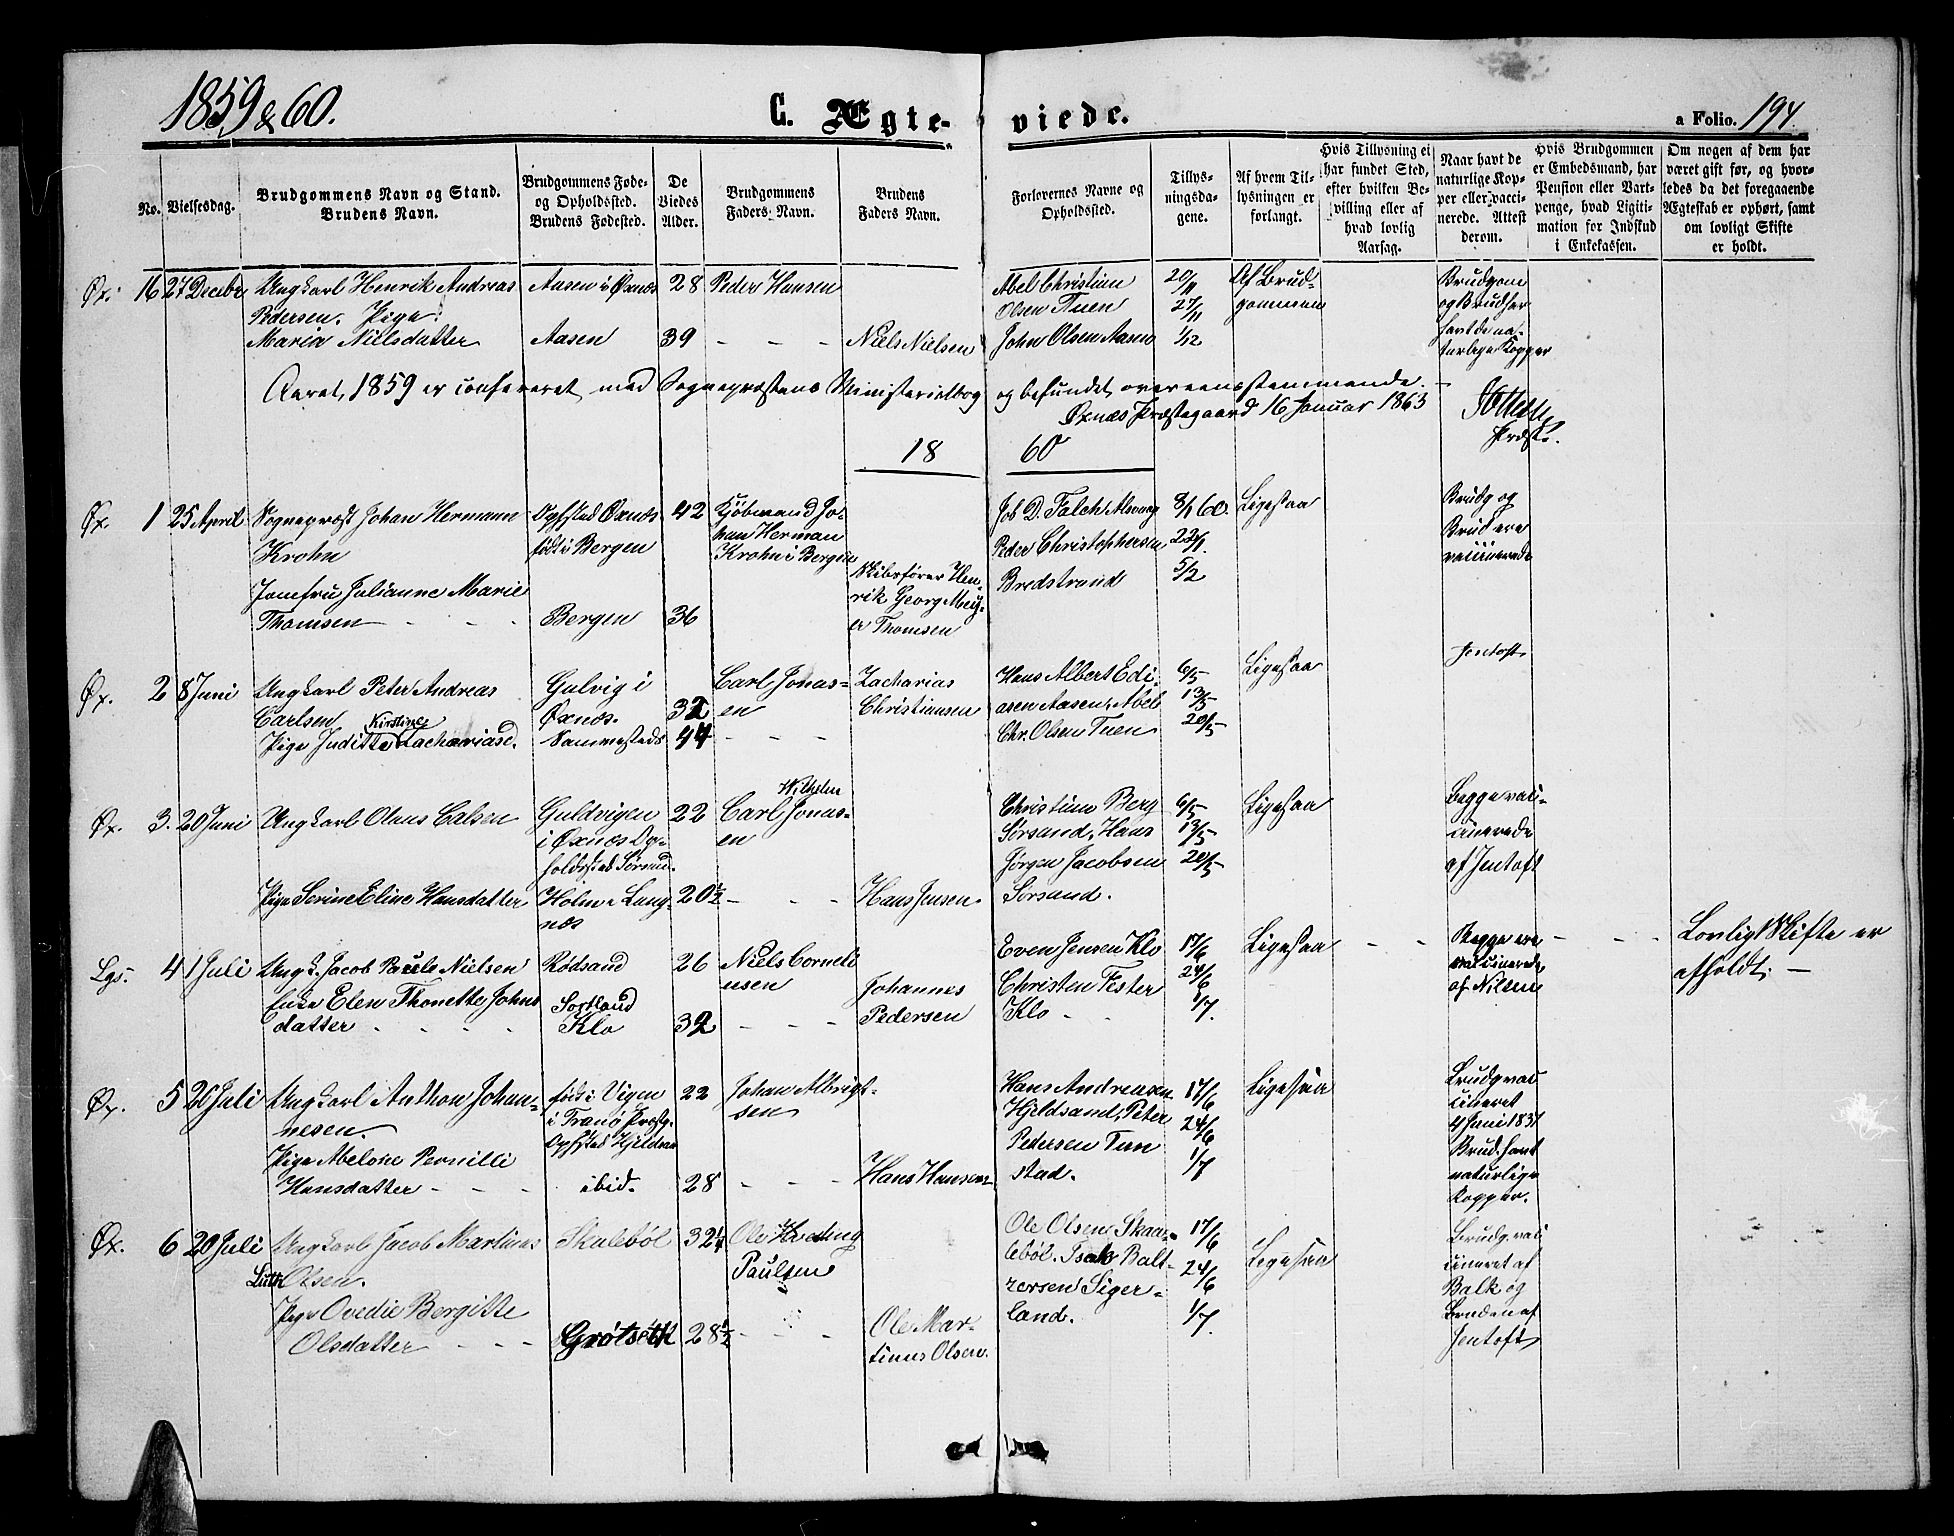 1859 & 60.
C. Ægte-viede.
a Folio. 194.
No.
Vielsesdag.
Brudgommens Navn og Stand.
Brudens Navn.
Brudgommens Føde-
og Opholdssted.
Brudens Fødested.
De
Viedes
Alder.
Brudgommens
Faders Navn.
Brudens
Faders Navn.
Forlovernes Navne og
Opholdssted.
Tillys-
ningsda-
gene.
Af hvem Til-
lysningen er
forlangt.
Hvis Tillysning ei
har fundet Sted,
efter hvilken Be-
villing eller af
hvad lovlig
Aarsag.
Naar havt de
naturlige Kop-
per eller vacci-
nerede. Attest
derom.
Hvis Brudgommen
er Embedsmand, har
Pension eller Vart-
penge, hvad Ligiti-
mation for Indskud
i Enkekassen.
Om nogen af dem har
været gift før, og hvor-
ledes da det foregaaende
Ægteskab er ophørt, samt
om lovligt Skifte
er holdt.
Øx. 16 27 Decebr Ungkarl Henrik Andreas
Pedersen. Pige
Maria Nielsdatter
Aasen i Øxnæs
Aasen
28
39
Peder Hansen
- - - Niels Nielsen
Abel Christian
Olsen Tuen
John Olsen Aasen
20/11
27/11
1/12
Af Brud-
gommen
Brudgom
og Brud har
havt de na-
turlige Kopper
Aaret 1859 er confereret med Sognepræstens Ministerialbog og befundet overeensstemmende. -
Øxnæs Præstegaard 16 Januar 1863
Præst.
18 60
Øx. 1 25 April Sognepræst Johan Hermann
Krohn
Jomfru Julianne Marie
Thomsen - - -
Opfsted Øxnæs
født i Bergen
Bergen
42
36
Kjøbmand Jo-
han Herman
Krohn i Bergen
Skibsfører Hen-
rik Georg Mey-
er Thomsen
Job D. Falch Alsvaag
Peder Christophersen
Bredstrand
8/1 60.
22/1.
5/2
Ligesaa
Brudg og
Brud ere
vaccinerede
Øx. 2 8 Juni Ungkarl Peter Andreas
Carlsen Kirstine
Pige Juditte Zachariasd.
Gulvig i
Øxnæs.
Sammesteds
32
44
Carl Jonas-
en
- - -
Zacharias
Christiansen
Hans Albert Edi-
asen Aasen, Abel
Chr. Olsen Tuen
6/5
13/5
20/5
Ligesaa
Jentoft
Øx. 3. 20 Juni Ungkarl Olaus Calsen
Pige Serine Eline Hansdatter
Guldvigen
i Øxnæs Op-
holdssted Sørsand.
Holm i Lang-
næs
22
20 1/2
Wilhelm
Carl Jonas-
en
- - - Hans Jensen.
Christian Berg
Sørsand, Hans
Jørgen Jacobsen
Sørsand.
6/5
13/5
20/5
Ligesaa
Begge vacci-
cinerede
af Jentoft
Lgs. 4 1 Juli Ungk. Jacob Paule Nielsen
Enke Elen Thonette Johns
datter - - -
Rødsand
Sortland
Klo
26
32
Niels Corneli
usen
- - -
Johannes
Pedersen
Even Jensen Klo
Christen Fester
Klo - -
17/6
24/6
1/7.
Ligesaa - -
Begge ere
vaccinerede
af Nilsen
- - -
Lovligt Skifte er
afholdt. -
Øx. 5 20 Juli Ungkarl Anthon Johan-
nesen.
Pige Abelone Pernilli
Hansdatter - - -
født i Vigen
i Tranø Præstg.
Opfsted Hjeldsan
ibid.
22
28
Johan Albrigt-
sen
- - - Hans Hansen
Hans Andreasen
Hjeldsand, Peter
Pedersen Tun
stad.
17/6
24/6
1/7
Ligesaa
Brudg vac
cineret
4 Juni 1837
Brud havt
naturlige
Kopper.
Øx. 6 20 Juli Ungkarl Jacob Martinus
Luth Olsen.
Pige Ovedie Bergitte
Olsdatter - - -
Skulebøl
Grøtsæth
32 1/4
28 1/2
Ole Hveding
Paulsen
- - -
Ole Mar-
tinus Olsen.
Ole Olsen Skaa-
lebøl. Isak Balt-
zersen Siger-
land.
17/6
24/6
1/7.
Ligesaa
Brudg. vac
cineret af
Balk og
Bruden af
Jentoft